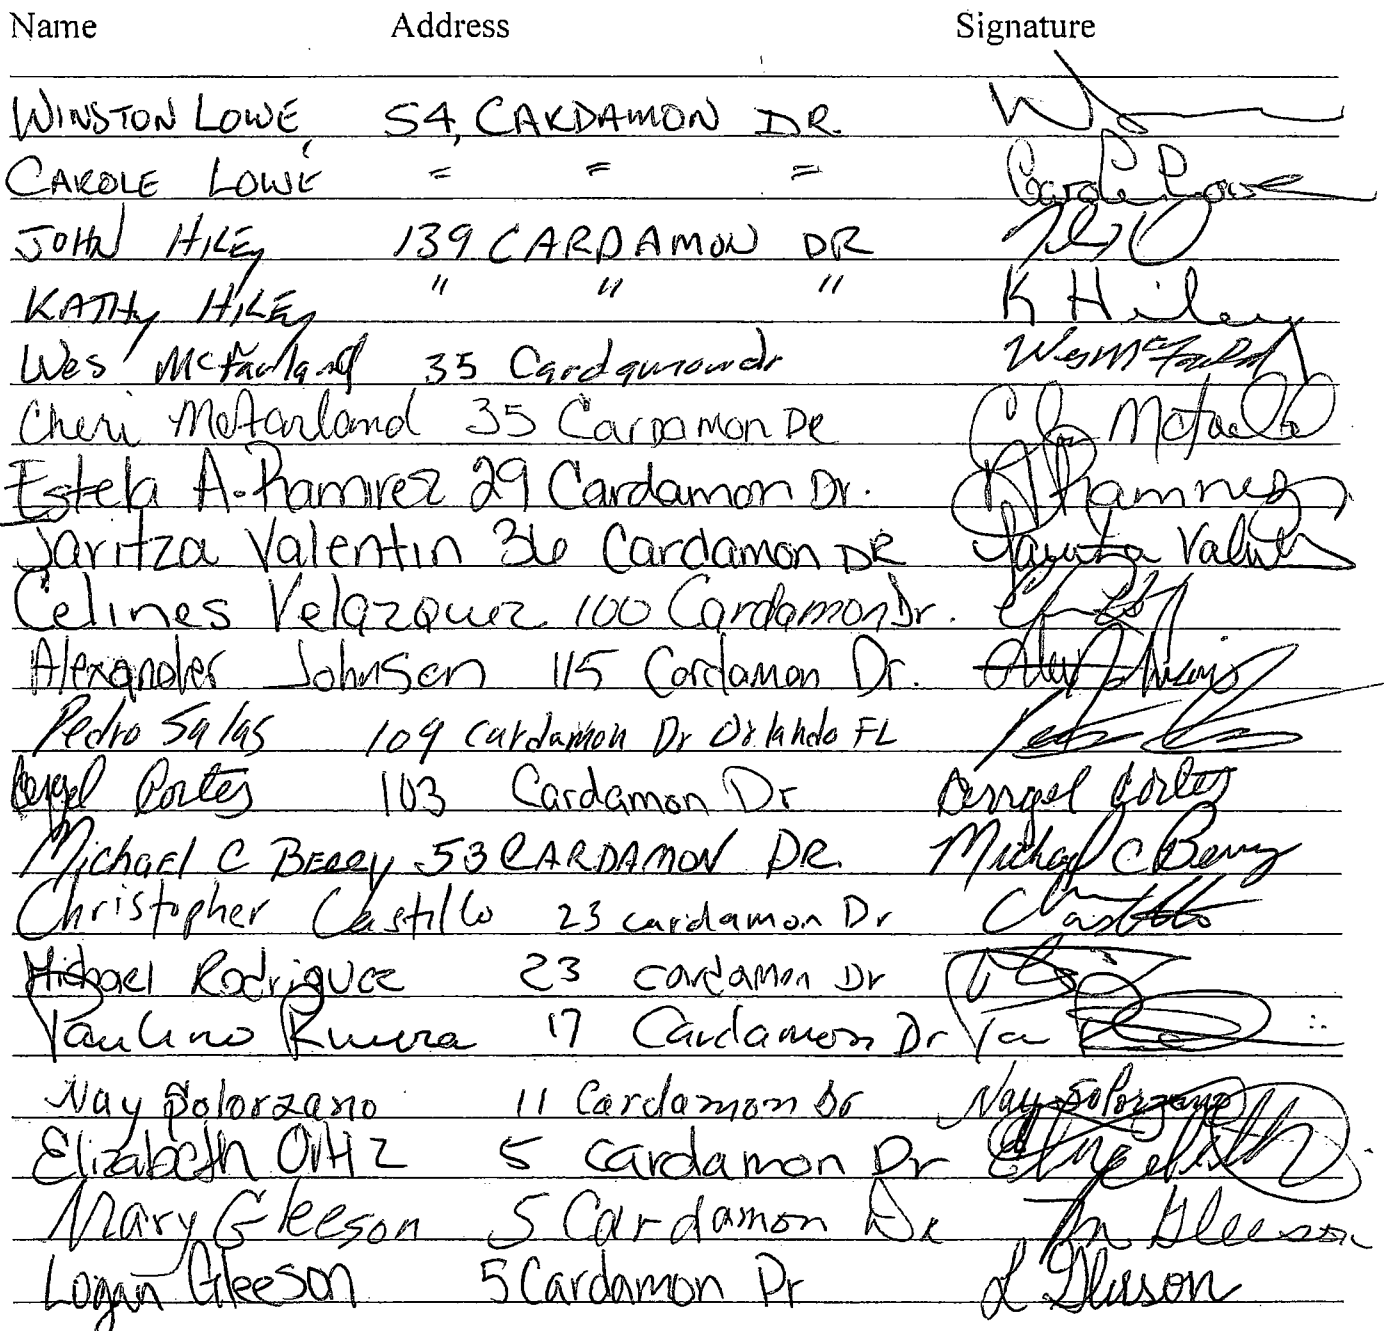 Name Address Signature
WINSTON LOWE, 54, CARDAMON DR.
CAROLE LOWE " " " Carole Lowe
JOHN HILEY 139 CARDAMON DR
KATHY HILEY " " " K Hiley
Wes McFarland 35 Cardamon dr Wes McFarld
Cheri McFarland 35 Cardamon DR
Estela A. Ramirez 29 Cardamon Dr. Ramirez
Jaritza Valentin 36 Cardamon DR Jaritza Valentin
Celines Velazquez 100 Cardamon Dr.
Alexander Johnson 115 Cardamon Dr.
Pedro Salas 109 Cardamon Dr Orlando FL
Cortes 103 Cardamon Dr Cortes
Michael C BERRY 53 CARDAMON DR. Michael C Berry
Christopher Castillo 23 cardamon Dr Castillo
Michael Rodriguez 23 cardamon Dr
Paulino Rivera 17 Cardamon Dr
Nay Solorzano 11 Cardamon Dr Nay Solorzano
Elizabeth Ortiz 5 cardamon Dr
Mary Gleeson 5 Cardamon Dr M Gleeson
Logan Gleeson 5 Cardamon Dr L Gleeson